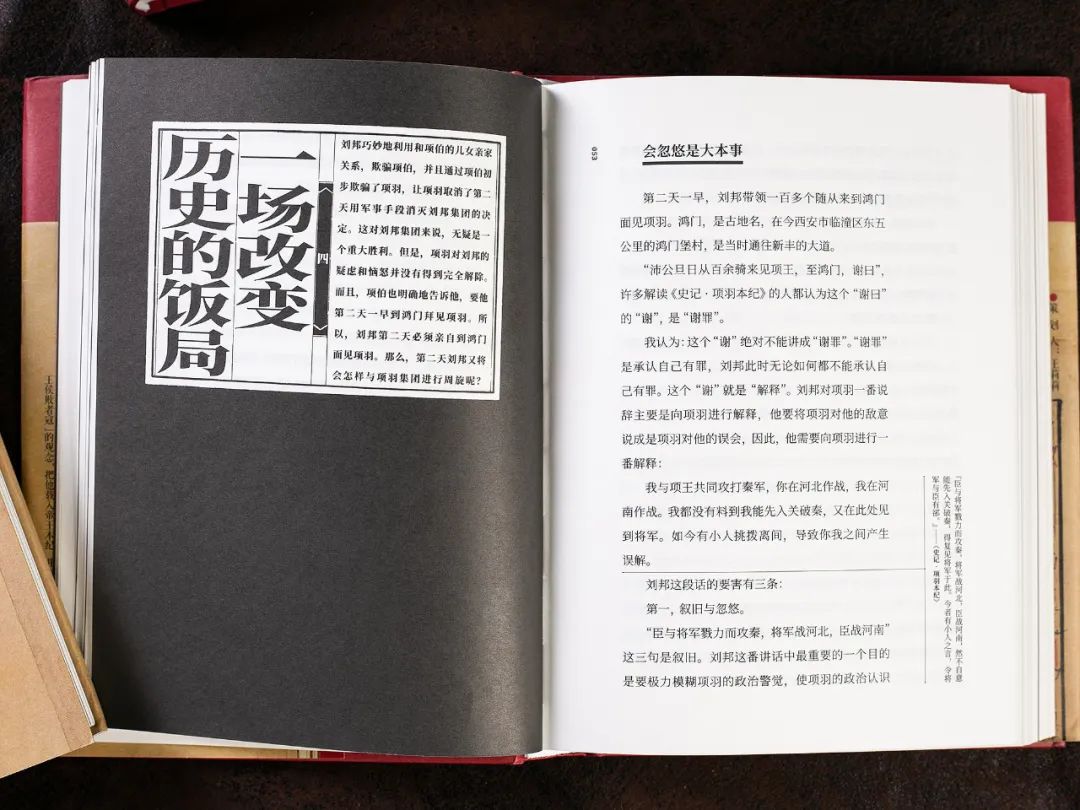 一场改变
历史的饭局
四
刘邦巧妙地利用和项伯的儿女亲家
关系，欺骗项伯，并且通过项伯初
步欺骗了项羽，让项羽取消了第二
天用军事手段消灭刘邦集团的决
定。这对刘邦集团来说，无疑是一
个重大胜利。但是，项羽对刘邦的
疑虑和恼怒并没有得到完全解除。
而且，项伯也明确地告诉他，要他
第二天一早到鸿门拜见项羽。所
以，刘邦第二天必须亲自到鸿门
面见项羽。那么，第二天刘邦又将
会怎样与项羽集团进行周旋呢？
053
会忽悠是大本事
第二天一早，刘邦带领一百多个随从来到鸿门
面见项羽。鸿门，是古地名，在今西安市临潼区东五
公里的鸿门堡村，是当时通往新丰的大道。
“沛公旦日从百余骑来见项王，至鸿门，谢曰”，
许多解读《史记·项羽本纪》的人都认为这个“谢曰”
的“谢”，是“谢罪”。
我认为：这个“谢”绝对不能讲成“谢罪”。“谢罪”
是承认自己有罪，刘邦此时无论如何都不能承认自
己有罪。这个“谢”就是“解释”。刘邦对项羽一番说
辞主要是向项羽进行解释，他要将项羽对他的敌意
说成是项羽对他的误会，因此，他需要向项羽进行一
番解释：
我与项王共同攻打秦军，你在河北作战，我在河
南作战。我都没有料到我能先入关破秦，又在此处见
到将军。如今有小人挑拨离间，导致你我之间产生
误解。
刘邦这段话的要害有三条：
第一，叙旧与忽悠。
“臣与将军戮力而攻秦，将军战河北，臣战河南”
这三句是叙旧。刘邦这番讲话中最重要的一个目的
是要极力模糊项羽的政治警觉，使项羽的政治认识
“臣与将军戮力而攻秦，将军战河北，臣战河南，然不自意
能先入关破秦，得复见将军于此。今者有小人之言，令将
军与臣有郤。”——《史记·项羽本纪》
王侯败者寇”的观念，把他列入帝王本纪
策划人：王莉莉